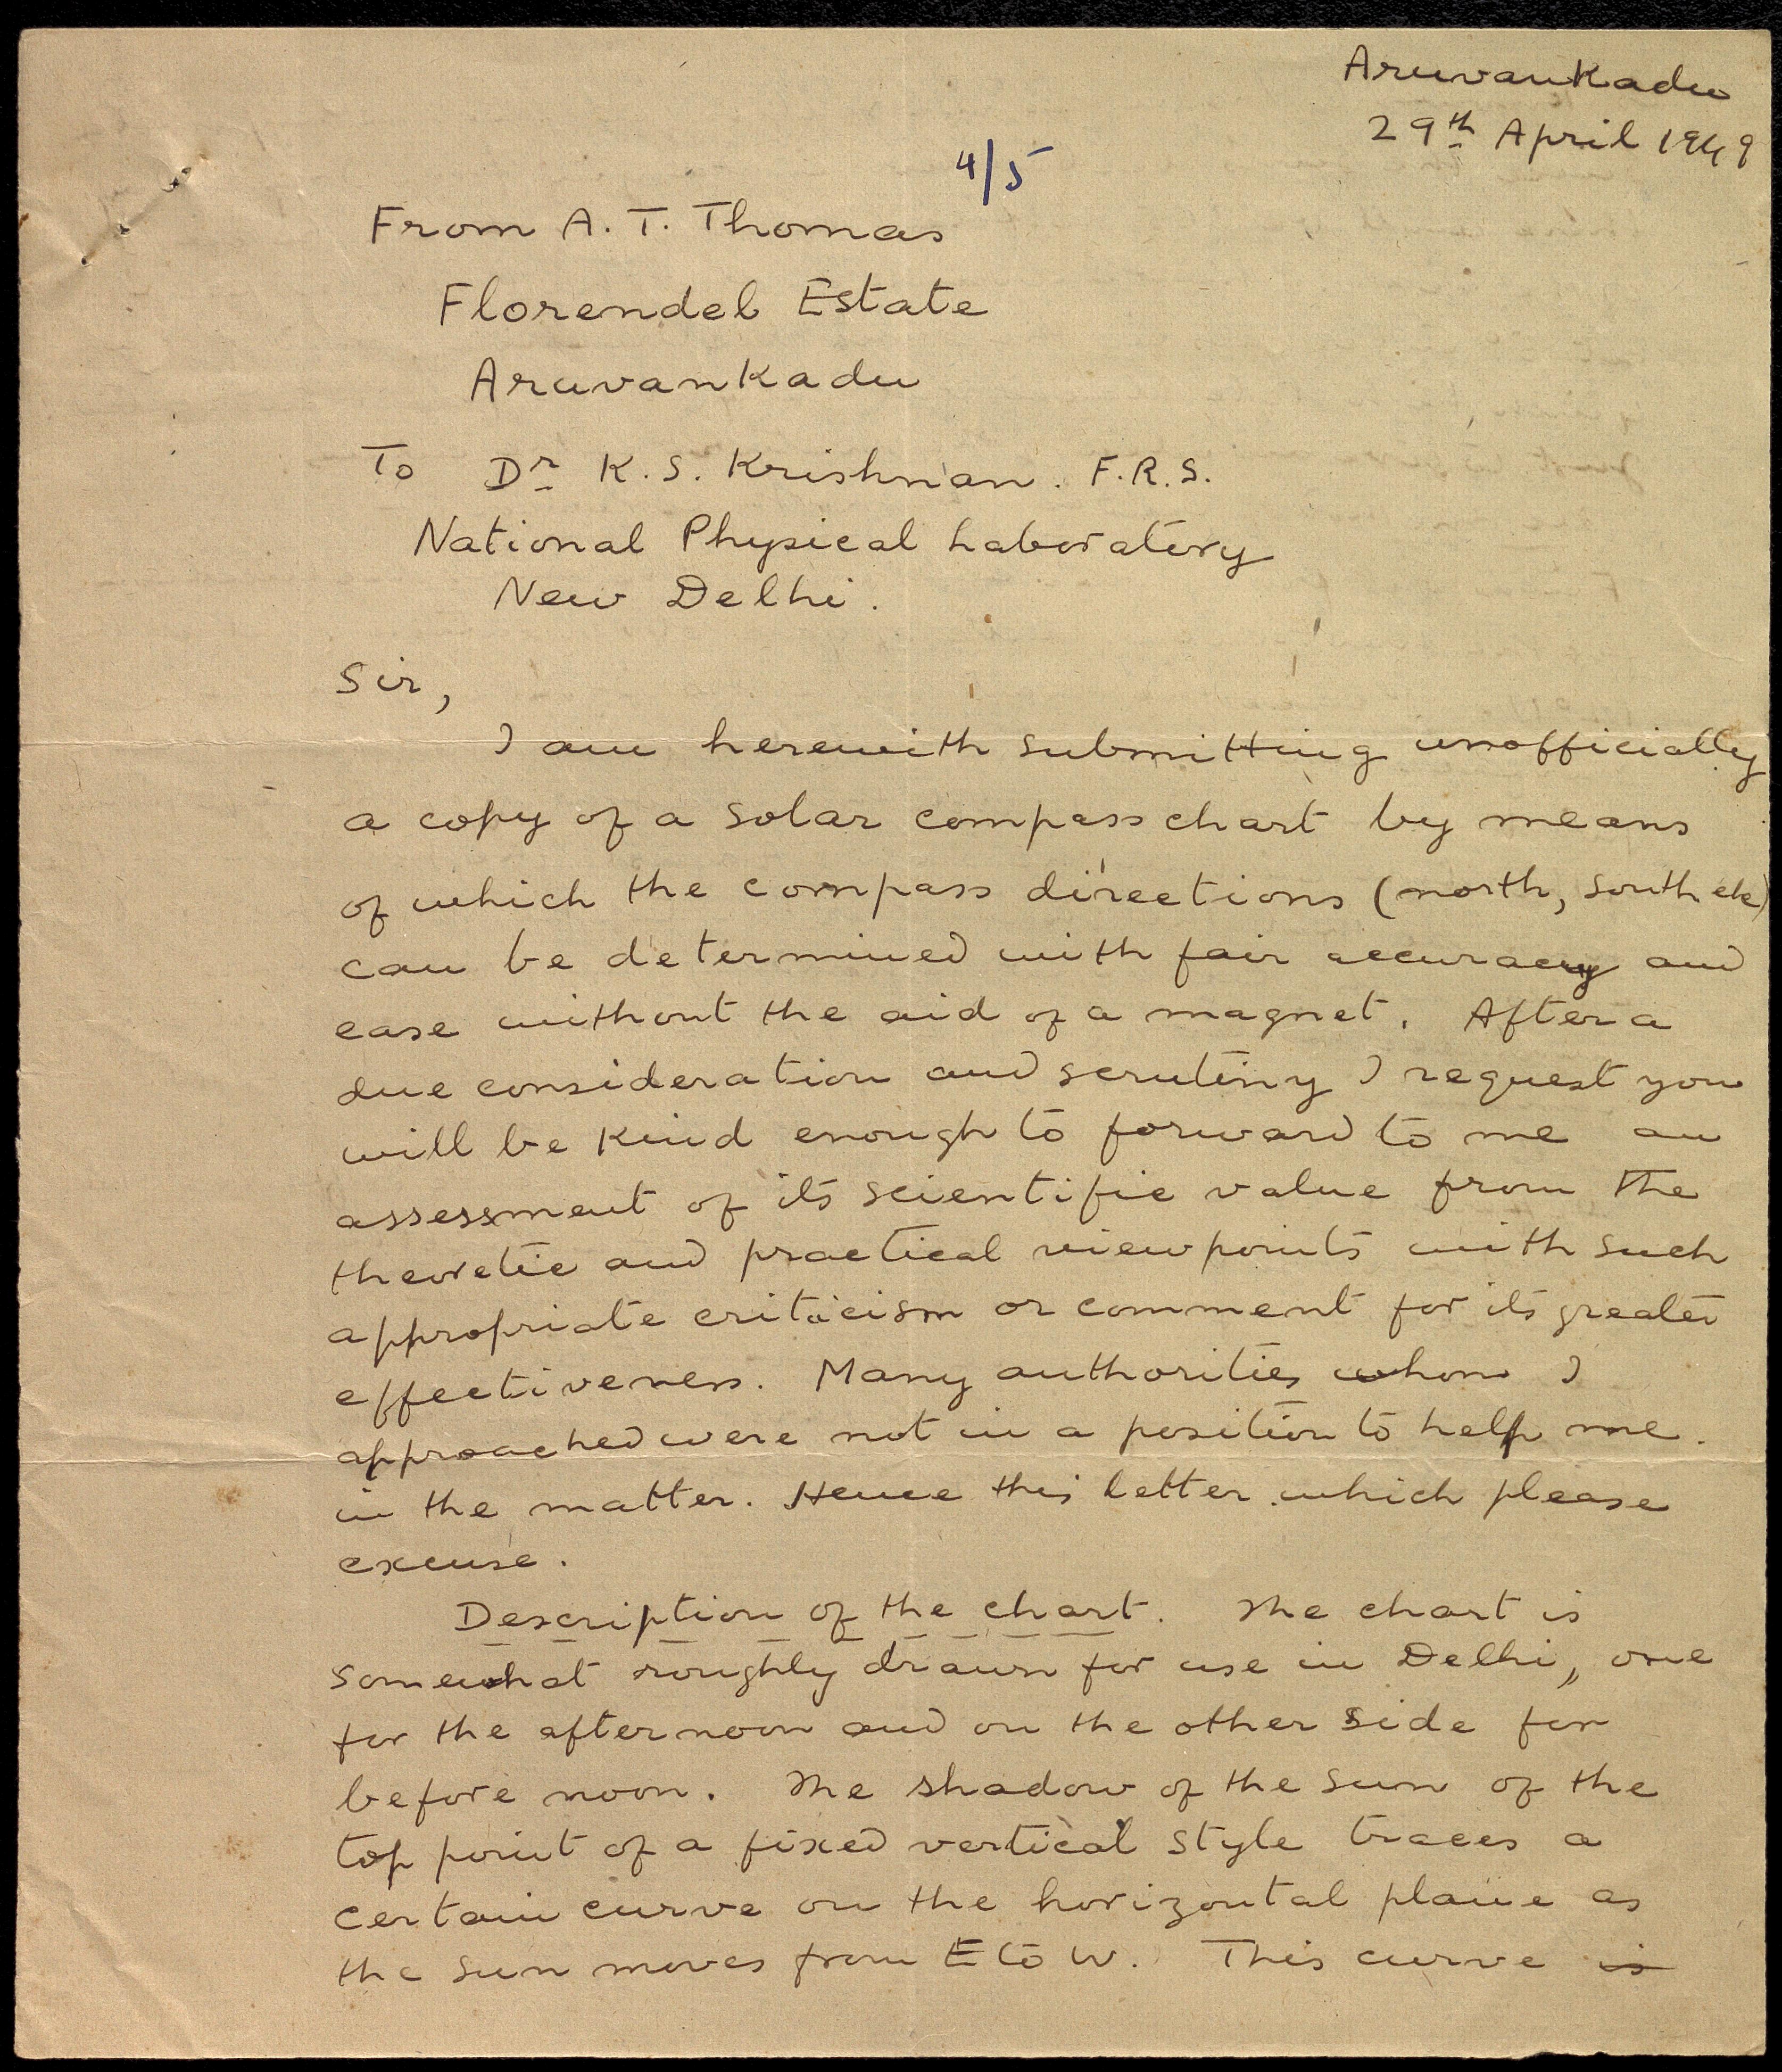 Aruvankadu
29th April 1949
4/5
From A. T. Thomas
Florendel Estate
Aruvankadu
To Dr K. S. Krishnan. F.R.S.
National Physical Laboratory
New Delhi.
Sir,
I am herewith submitting unofficially
a copy of a solar compass chart by means
of which the compass directions (north, south etc)
can be determined with fair accuracy and
ease without the aid of a magnet. After a
due consideration and scrutiny I request you
will be kind enough to forward to me an
assessment of its scientific value from the
theoretic and practical viewpoints with such
appropriate criticism or comment for its greater
effectiveness. Many authorities whom I
approached were not in a position to help me.
in the matter. Hence this letter which please
excuse.
Description of the chart. The chart is
somewhat roughly drawn for use in Delhi, one
for the afternoon and on the other side for
before noon. The shadow of the sun of the
top point of a fixed vertical style traces a
certain curve on the horizontal plane as
the sun moves from E to W. This curve is